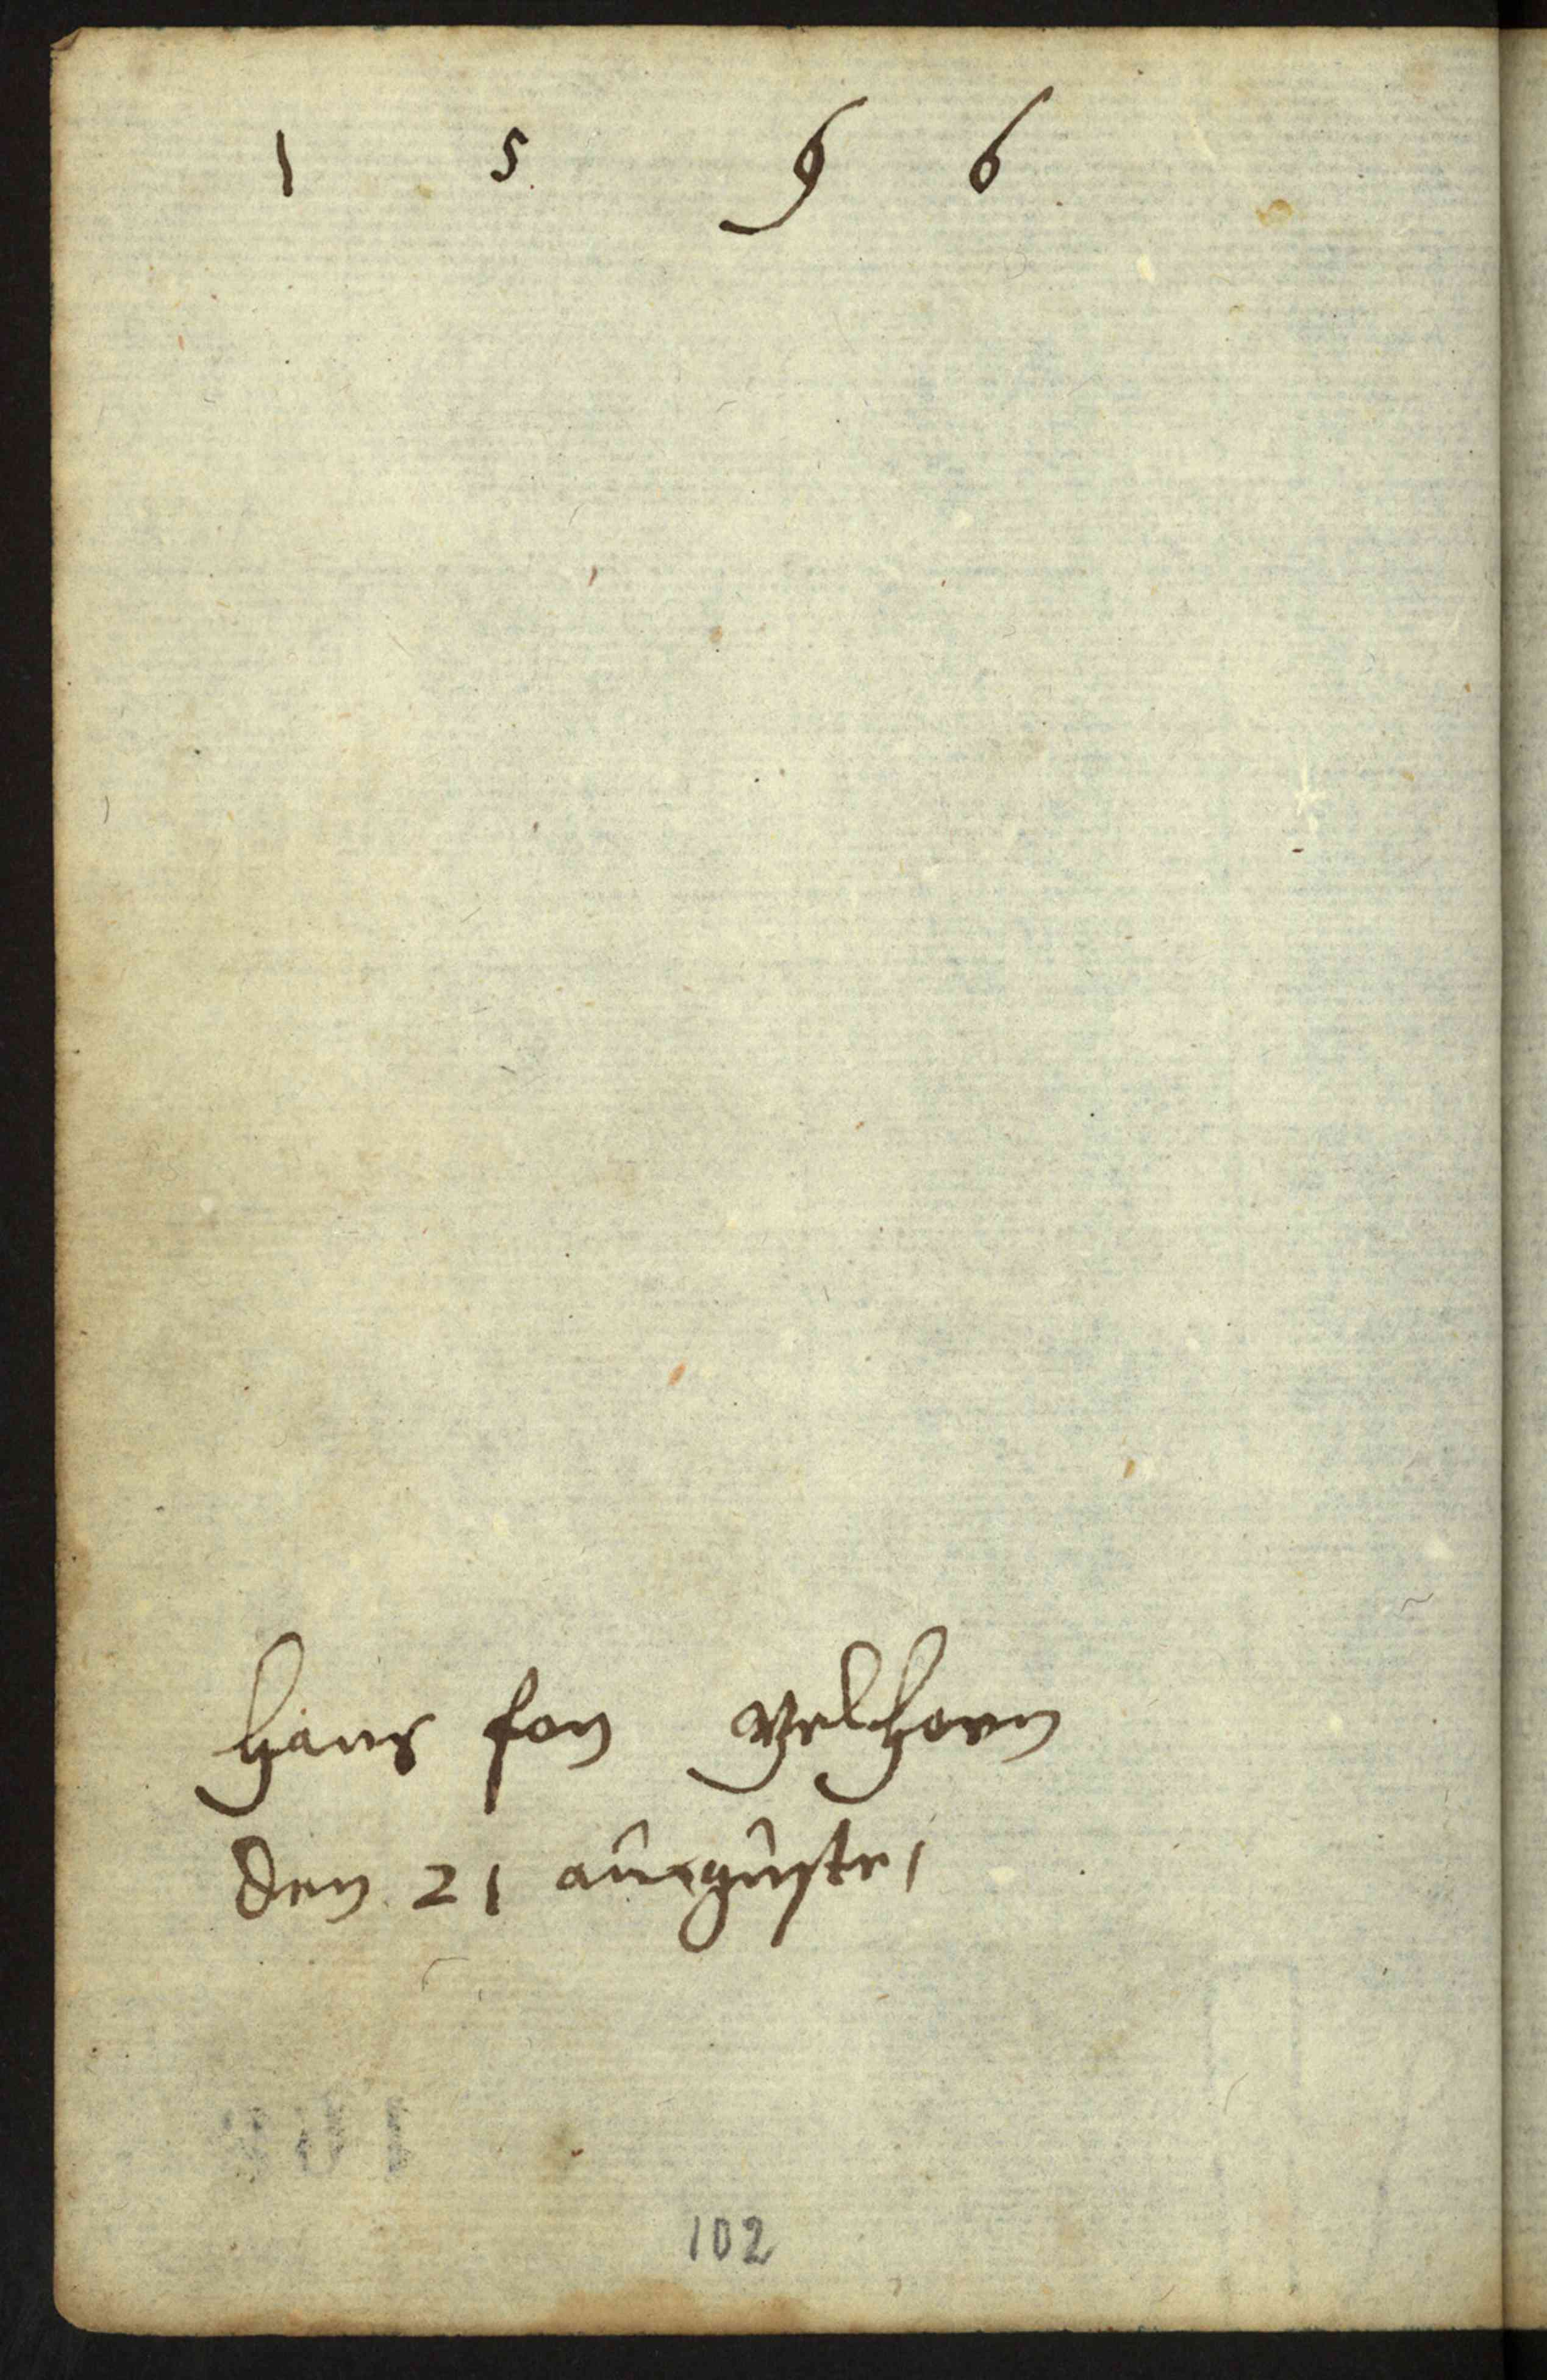 1 5 9 6
Hans fon
den 21 auguste
102